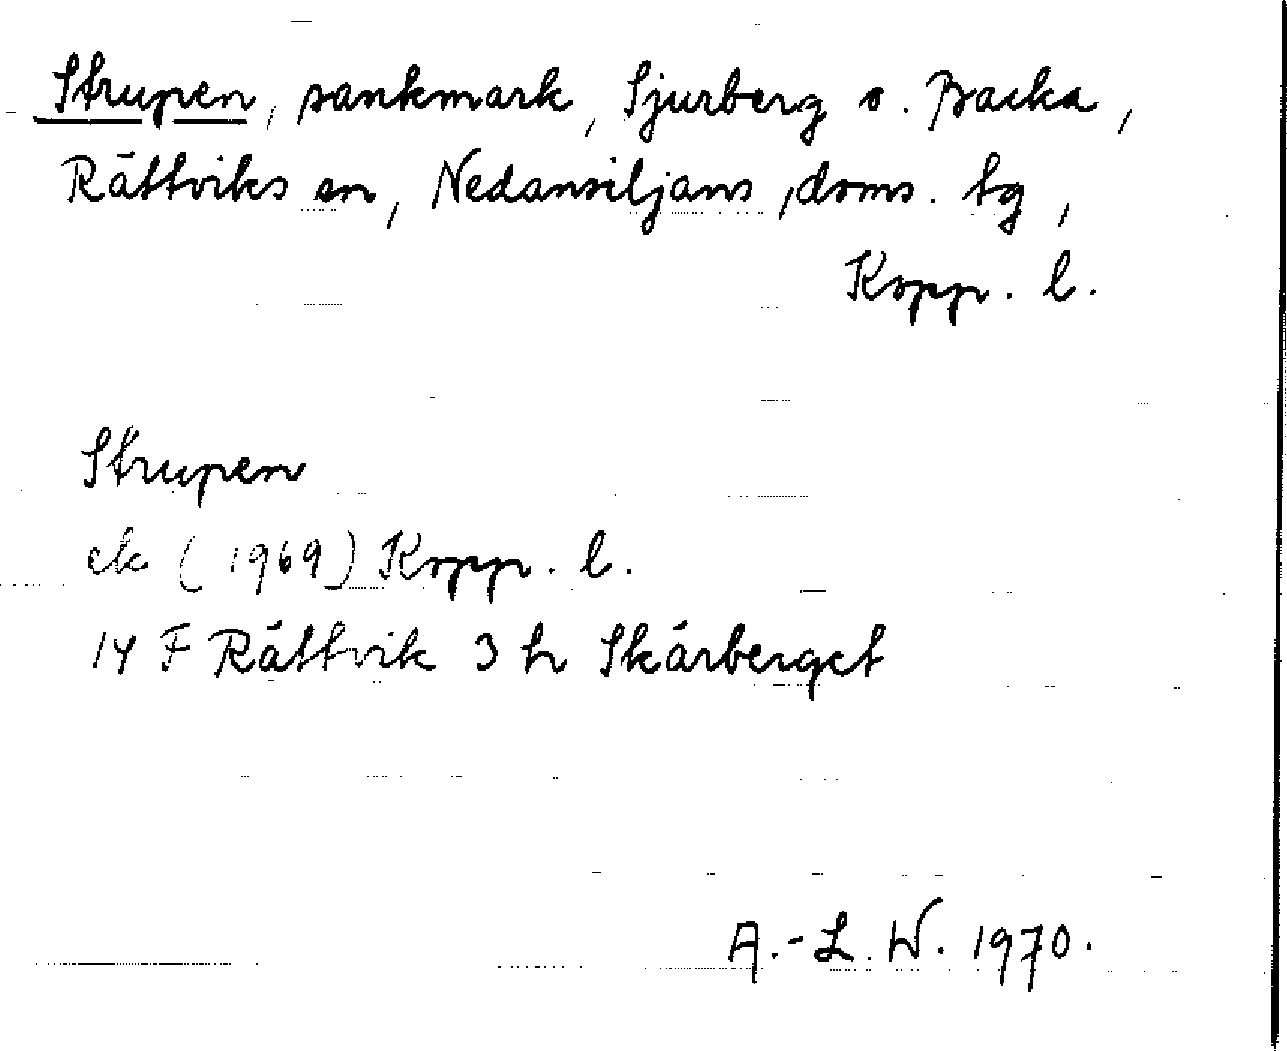 Strupen, sankmark, Sjurberg o. Backa,
Rättviks sn, Nedansiljans doms. tg,
Kopp. l.
Strupen
ek (1969) Kopp. l.
14 F Rättvik 3 h Skärberget
A.-L. W. 1970.